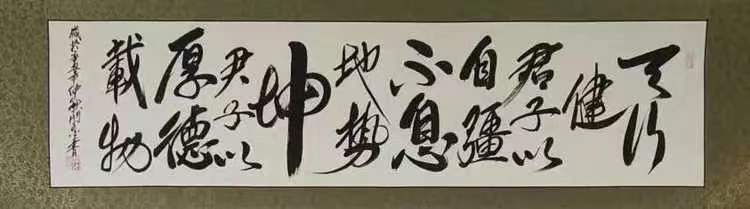 天行
健
君子以
自疆
不息
地势
坤
君子以
厚德
載物